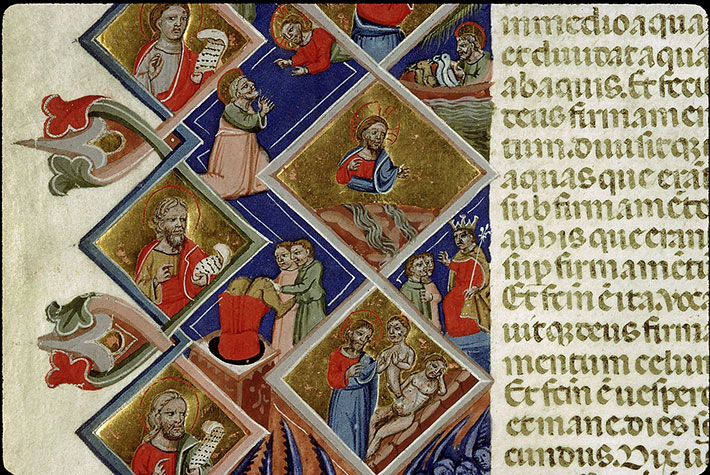 in medio aqua
et diuidat aqua
ab aquis. Et fecit
deus firmamen
tum. diuisitq̄
aquas que erā
sub firmamēto
ab his que eran
sup firmamētū
Et fc̄m ē ita. voca
uitq̄ deus firma
mentum celum
Et fc̄m ē uesper
et mane. dies se
cundus. Dix̄ u